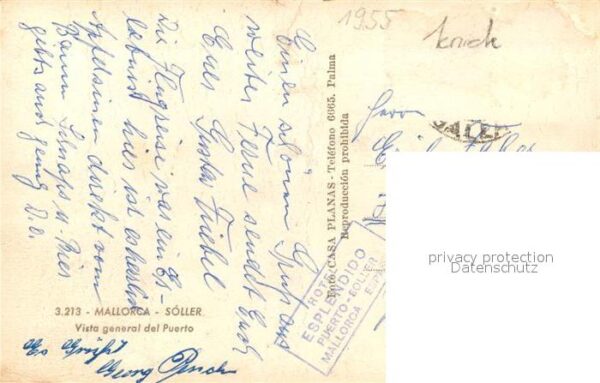 1955
knick
Einen schönen Gruß aus
weiter Ferne sendet Euch
Euer Gustav Friebel
Die Flugreise war ein Er-
lebnis hier ist es herrlich
Apfelsinen direkt vom
Baum Schnaps u. Bier
gibts auch genug D.O.
3.213 - MALLORCA - SÓLLER
Vista general del Puerto
Es Grüßt
Georg
Foto CASA PLANAS - Teléfono 6665. Palma
Reproducción prohibida
Herrn
HOTEL
ESPLENDIDO
PUERTO-SOLLER
MALLORCA
privacy protection
Datenschutz